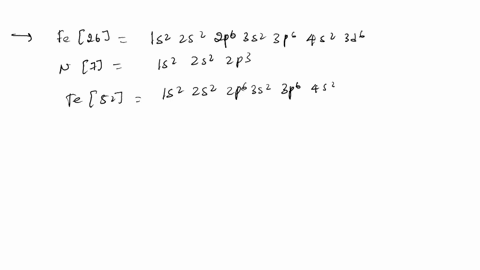 → Fe [26] = 1s² 2s² 2p⁶ 3s² 3p⁶ 4s² 3d⁶
N [7] = 1s² 2s² 2p3
Te [52] = 1s² 2s² 2p⁶ 3s² 3p⁶ 4s²